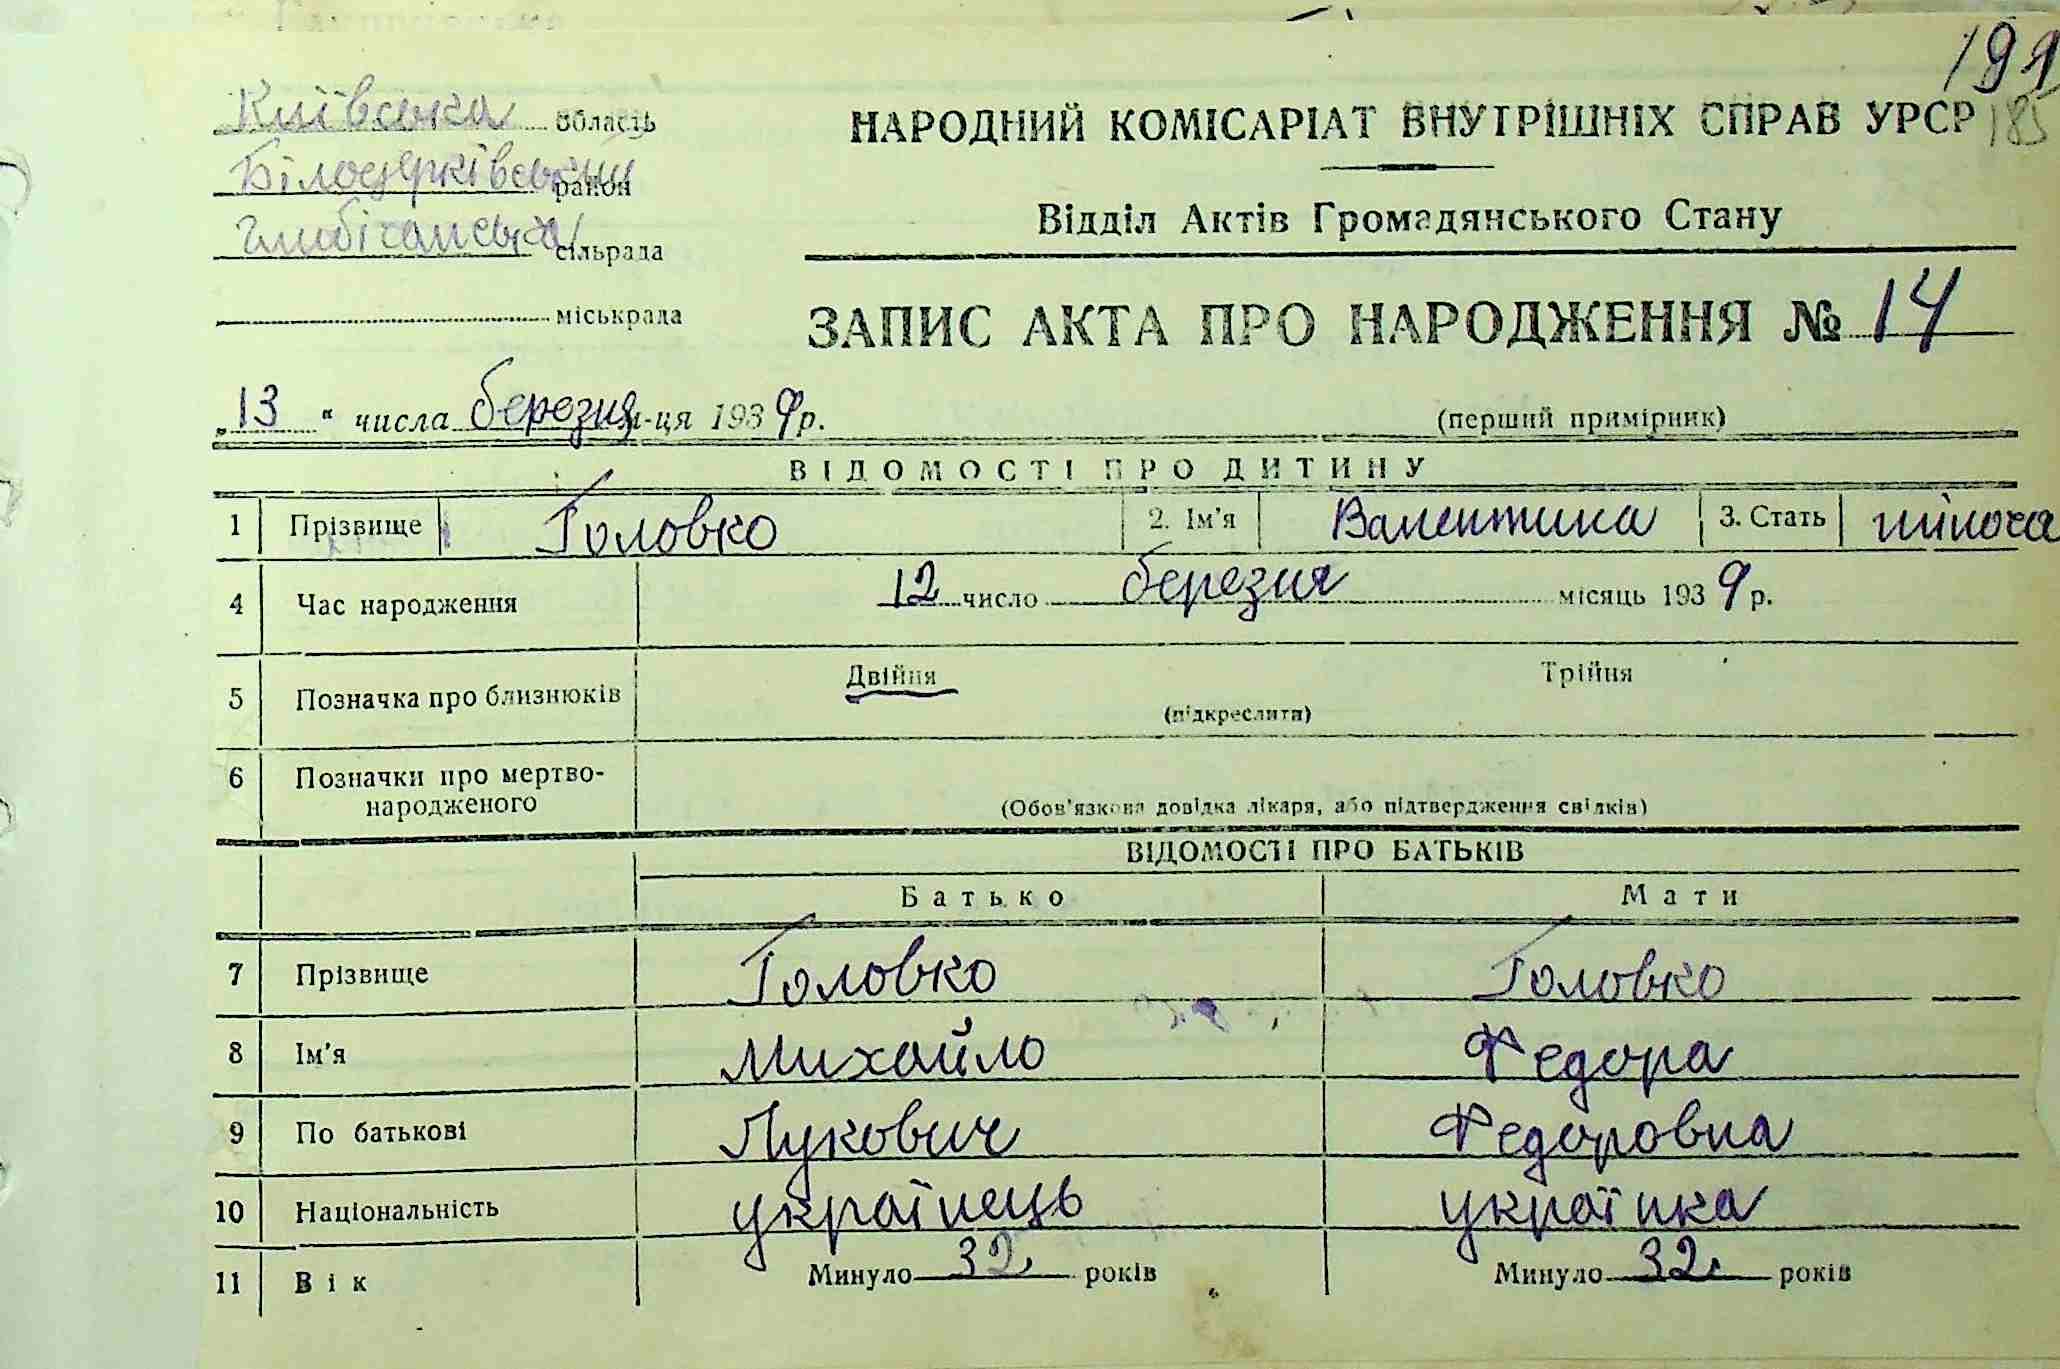 191
185
Київська область
Білоцерківський район
Глибічанська сільрада
міськрада
НАРОДНИЙ КОМІСАРІАТ ВНУТРІШНІХ СПРАВ УРСР
Відділ Актів Громадянського Стану
ЗАПИС АКТА ПРО НАРОДЖЕННЯ № 14
„13“ числа березня м-ця 1939 р.
(перший примірник)
ВІДОМОСТІ ПРО ДИТИНУ
1 Прізвище Головко 2. Ім'я Валентина 3. Стать жіноча
4 Час народження 12 число березня місяць 1939 р.
5 Позначка про близнюків Двійня Трійня
(підкреслити)
6 Позначки про мертво-
народженого
(Обов'язкова довідка лікаря, або підтвердження свідків)
ВІДОМОСТІ ПРО БАТЬКІВ
Батько Мати
7 Прізвище Головко Головко
8 Ім'я Михайло Федора
9 По батькові Лукович Федоровна
10 Національність українець українка
11 Вік Минуло 32 років Минуло 32 років